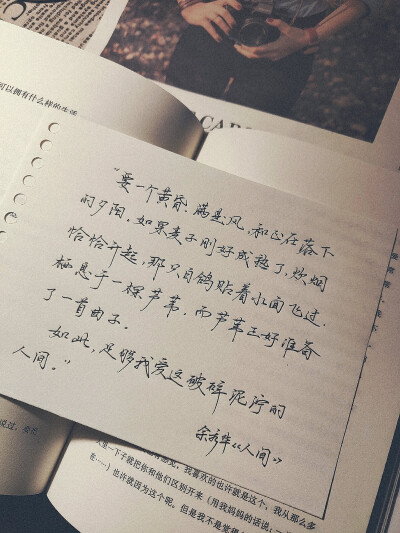 可以拥有什么样的生活
"要一个黄昏,满是风,和正在落下
的夕阳。如果麦子刚好成熟了,炊烟
恰恰升起,那只白鸽贴着水面飞过,
栖息于一棵芦苇,而芦苇正好准备
了一首曲子。
如此,足够我爱这破碎泥泞的
人间。"
余秀华《人间》
一下子就把你和他们区别开来(用我妈妈的话说:
也许就因为这个呢。但是我不是觉得